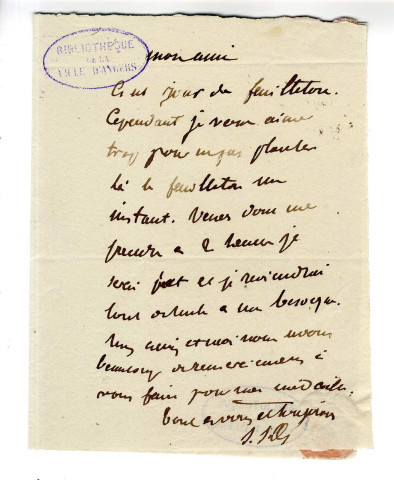 BIBLIOTHÈQUE
DE LA
VILLE D'ANGERS
mon ami
C'est jour de feuilleton.
Cependant je vous aime
trop pour ne pas planter
là le feuilleton un
instant. Venez donc me
prendre à 2 heures je
serai prêt et je reviendrai
tout de suite à ma besogne.
amis et moi nous avons
beaucoup de remerciements à
vous faire pour
tout à vous et toujours